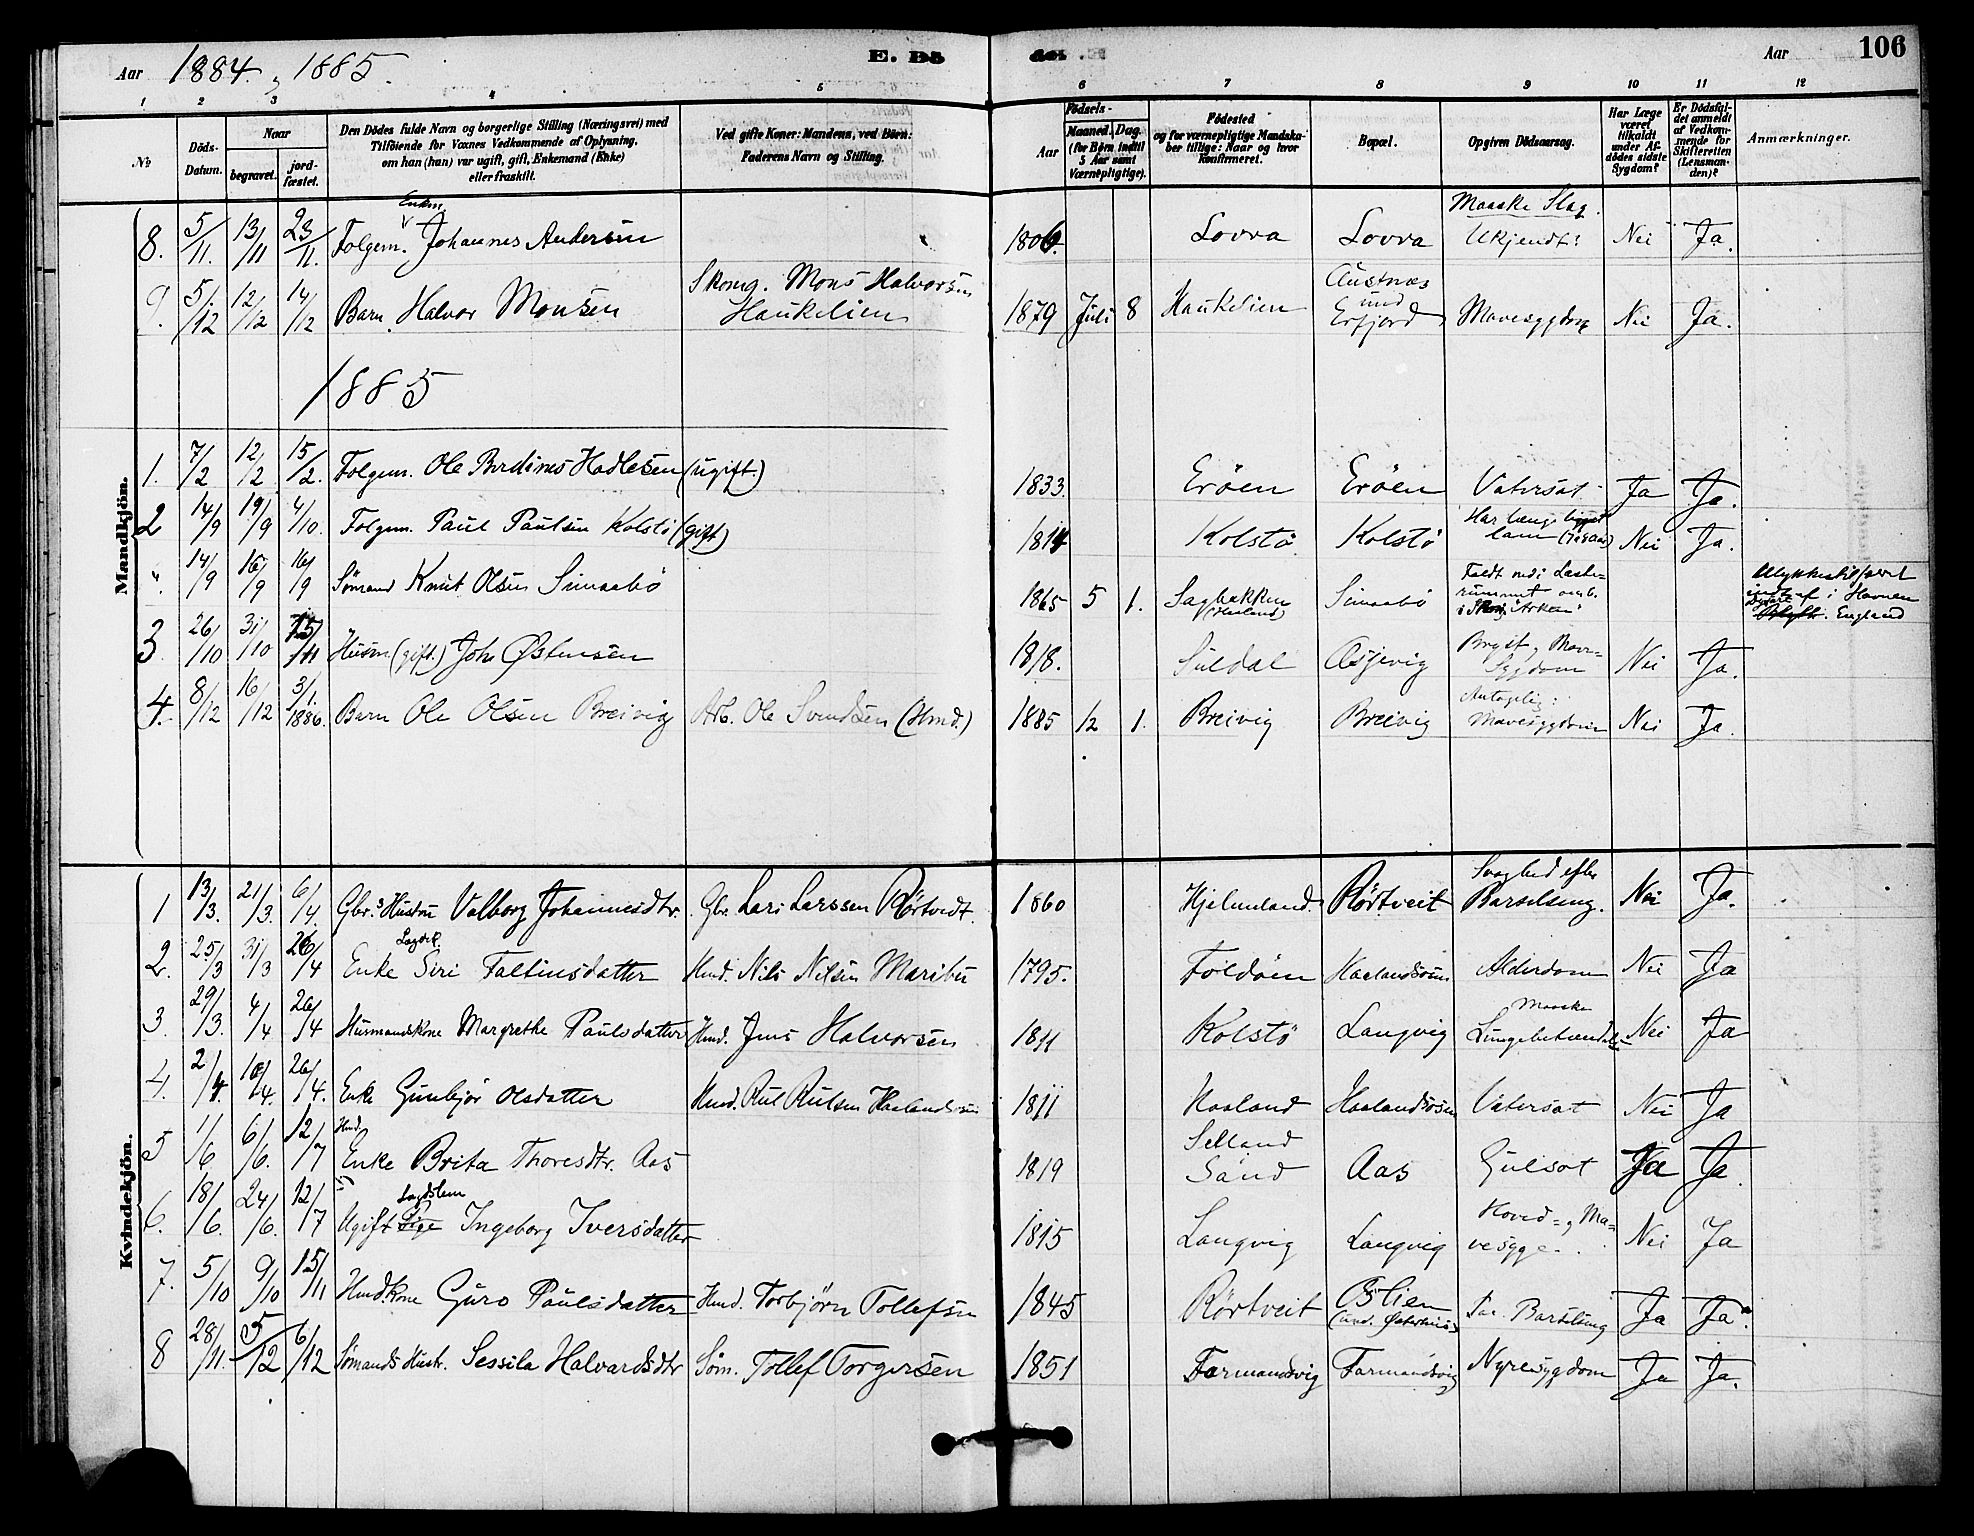 Aar 1884, 1885.
E. Dö de.
Aar
106
1 2 3 4 5 6 7 8 9 10 11 12
No
Döds-Datum.
Naar
begravet.
jord-fæstet.
Den Dödes fulde Navn og borgerlige Stilling (Næringsvei) med
Tilföiende for Voxnes Vedkommende af Oplysning,
om han (hun) var ugift, gift, Enkemand (Enke)
eller fraskilt.
Ved gifte Koner: Mandens, ved Börn:
Faderens Navn og Stilling.
Födsels-
Aar
Maaned. Dag.
(for Børn indtil
5 Aar samt
Værnepligtige).
Födested
og for værnepligtige Mandska-
ber tillige: Naar og hvor
konfirmeret.
Bopæl.
Opgiven Dödsaarsag.
Har Læge
været
tilkaldt
under Af-
dödes sidste
Sygdom?
Er Dödsfal-
det anmeldt
af Vedkom-
mende for
Skifteretten
(Lensman-
den)?
Anmærkninger.
Mandkjön.
8. 5/11. 13/11 23/11. Folgem. Enkm. Johannes Andersen 1806. Lovra Lovra Maaske Slag. Ukjendt: Nei Ja.
9. 5/12 12/12 14/12 Barn Halvor Monsen Skomg. Mons Halvorsen Haukelien 1879 Juli 8 Haukelien Austnæs und Erfjord Mavesygdom Nei Ja.
1885
1. 7/2 12/2 15/2. Folgem. Ole Berdines Hadlesen (ugift.) 1833. Eröen Eröen Vatersot Ja Ja.
2 14/9 19/9 4/10. Folgem. Paul Paulsen Kolstö (gift) 1814 Kolstö Kolstö Har længe ligget lam Nei Ja.
" 14/9 16/9 16/9 Sömand Knut Olsen Simabö 1865 5 1. Sagbakken Simabö Faldt ned i Laste- rummet omb. i "Arken" Ulykkestilfældet indtraf i Havnen England
3. 26/10 31/10 15/11 Husm. (gift.) Johs Østensen 1818. Suldal Asjevig Bryst og Mave- Sygdom Nei Ja.
4. 8/12 16/12 3/1. 1886. Barn Ole Olsen Breivig Arb. Ole Svendsen (Hmd.) 1885 12 1. Breivig Breivig Antagelig: Mavesygdom Nei Ja.
Kvindekjön.
1 13/3. 21/3. 6/4. Gbr.s Hustru Valborg Johannesdtr. Gbr. Lars Larssen Rörtveit 1860 Hjelmeland. Rörtveit Svaghed efter Barselseng. Nei Ja.
2. 25/3 31/3 26/4 Enke Siri Faltinsdatter Hmd. Nils Nilsen Maribu 1795. Foldöen Haalandsosen Alderdom Nei Ja
3. 29/3. 4/4 26/4 Husmandskone Margrethe Paulsdatter Hmd. Jens Halvorsen 1811 Kolstö Langvig Maaske Lungebetændelse Nei Ja
4. 2/4. 10/4. 26/4. Enke Gunbjör Olsdatter Hmd. Rul Rulsen Haalandsosen 1811 Haaland Haalandsosen Vatersot Nei Ja
5 1/6 6/6. 12/7 Hmd. Enke Brita Thoresdtr. Aas 1819 Selland Sand Aas Gulsot Ja Ja.
6. 18/6. 24/6. 12/7 Ugift Lagdslem Pige Ingeborg Iversdatter 1815 Langvig Langvig Hoved- og Ma- vesyge. Nei Ja
7. 5/10 9/10 15/11 Hmdkone Guro Paulsdatter Hmd. Torbjörn Tollefsen 1845 Rörtveit Oslien Barselseng Ja Ja.
8 28/11. 5/12 6/12 Sömands Hustr. Sessila Halvardsdtr Söm. Tollef Torgersen 1851 Farmandsvig Farmandsvig Nyresygdom Ja Ja.